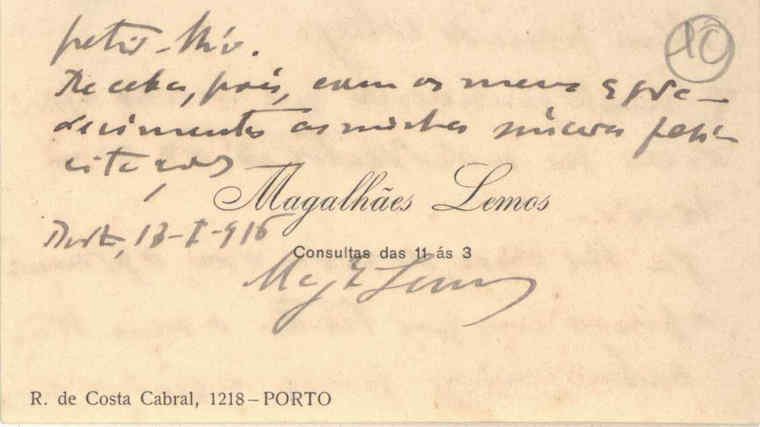 10
Receba, pois, com os meus agra-
decimentos as minhas sinceras feli-
citações
Magalhães Lemos
Porto, 13-I-916
Consultas das 11 ás 3
Lemos
R. de Costa Cabral, 1218 – PORTO